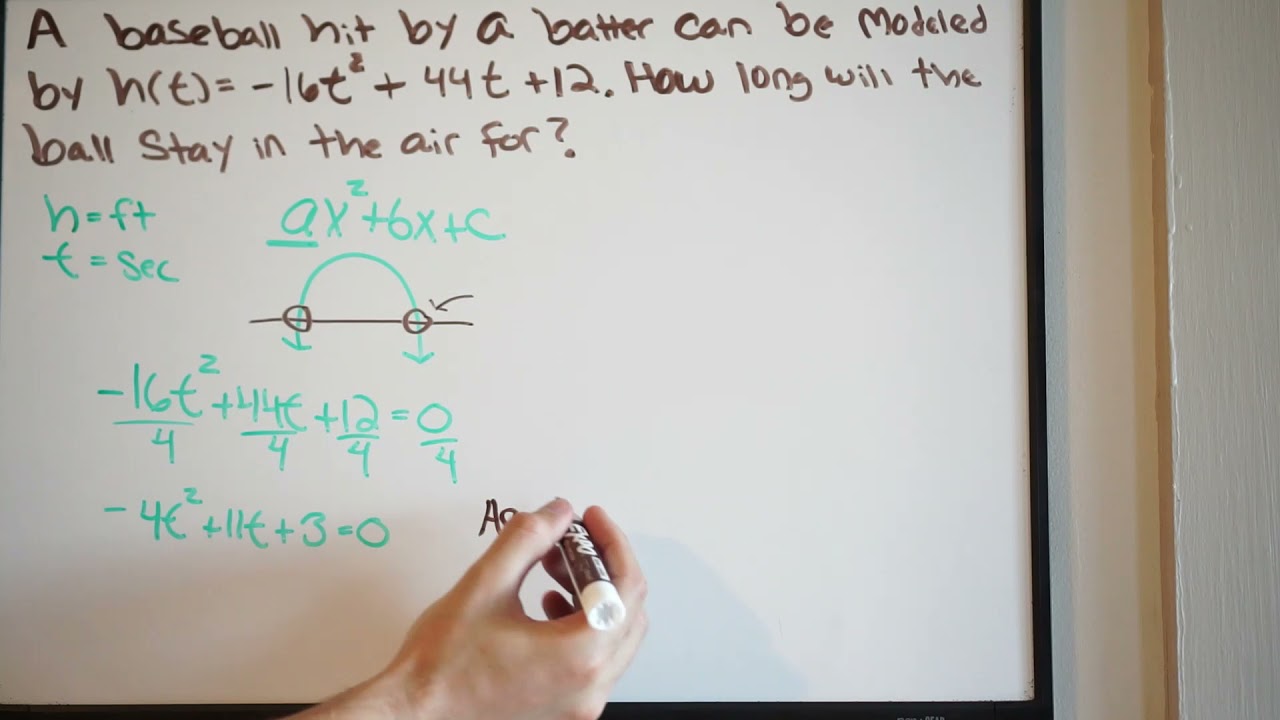 A baseball hit by a batter can be modeled
by h(t) = -16t² + 44t + 12. How long will the
ball stay in the air for?
h = ft
t = sec
ax² + bx + c
-16t²/4 + 44t/4 + 12/4 = 0/4
-4t² + 11t + 3 = 0
EXPO